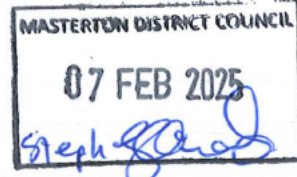 MASTERTON DISTRICT COUNCIL
07 FEB 2025